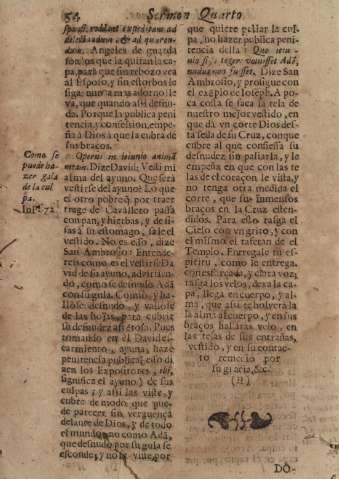 54 Sermon Quarto
Angeles de guarda
son los que la quitaran la ca-
pa, para que sin rebozo vea
al Esposo, y sin estorbos le
siga: nunca mas adorno le
va, que quando assi desnu-
da. Porque la publica peni
tencia, y confession, empe-
ña à Dios à que la cubra de
sus braços.
Como se
puede ha-
zer gala
de la cul
pa.
Operui in ieiunio animã
meam. Dize David: Vesti mi
alma del ayuno. Que serà
vestirse del ayuno? Lo que
el otro pobre, por traer
trage de Cavallero passa
con pan, y hierbas, y de si-
sas à su estomago, sale el
vestido. No es esso, dize
San Ambrosio: Entende-
reis como es el vestirse Da
vid de su ayuno, advirtien-
do, como se desnudo Adã
con su gula. Comio, y ha-
llòse desnudo, y valiose
de las hojas, para cubrir
su desnudez afrentosa. Pues
tomando en el David es-
carmiento, ayuna, haze
penitencia publica (esso di
zen los Expositores,
significa el ayuno) de sus
culpas; y assi las viste, y
cubre de modo, que pue-
de parecer sin verguença
delante de Dios, y de todo
el mundo: no como Adã,
que desnudo por su gula se
esconde, y no la viste, por
que quiere paliar la cul-
pa, no hazer publica peni
tencia della: Que ieiu-
nio si, tegere voluisset Adã,
nudus non fuisset, Dize San
Ambrosio, y prosigue con
el exẽplo de Ioseph. A po-
ca costa se saca la tela de
nuestro mejor vestido, en
que dà un corte Dios des-
de la seda de su Cruz, conque
cubre al que confiessa su
desnudez sin paliarla, y le
empeña en que con las te
las de el coraçon le vista, y
no tenga otra medida el
corte, que sus inmensos
braços en la Cruz esten-
didos. Para esso rasga el
Cielo con un grito, y con
el mismo el tafetan de el
Templo. Entregale su es-
piritu, como le entrega,
con essa voz
rasga los velos, dexa la ca-
pa, llega en cuerpo, y al-
ma, que assi te bolverà la
la alma al cuerpo, y en sus
braços hallaràs velo, en
las telas de sus entrañas,
vestido, y en su contac-
to remedio por
su gracia, &c.
(§)
DO-